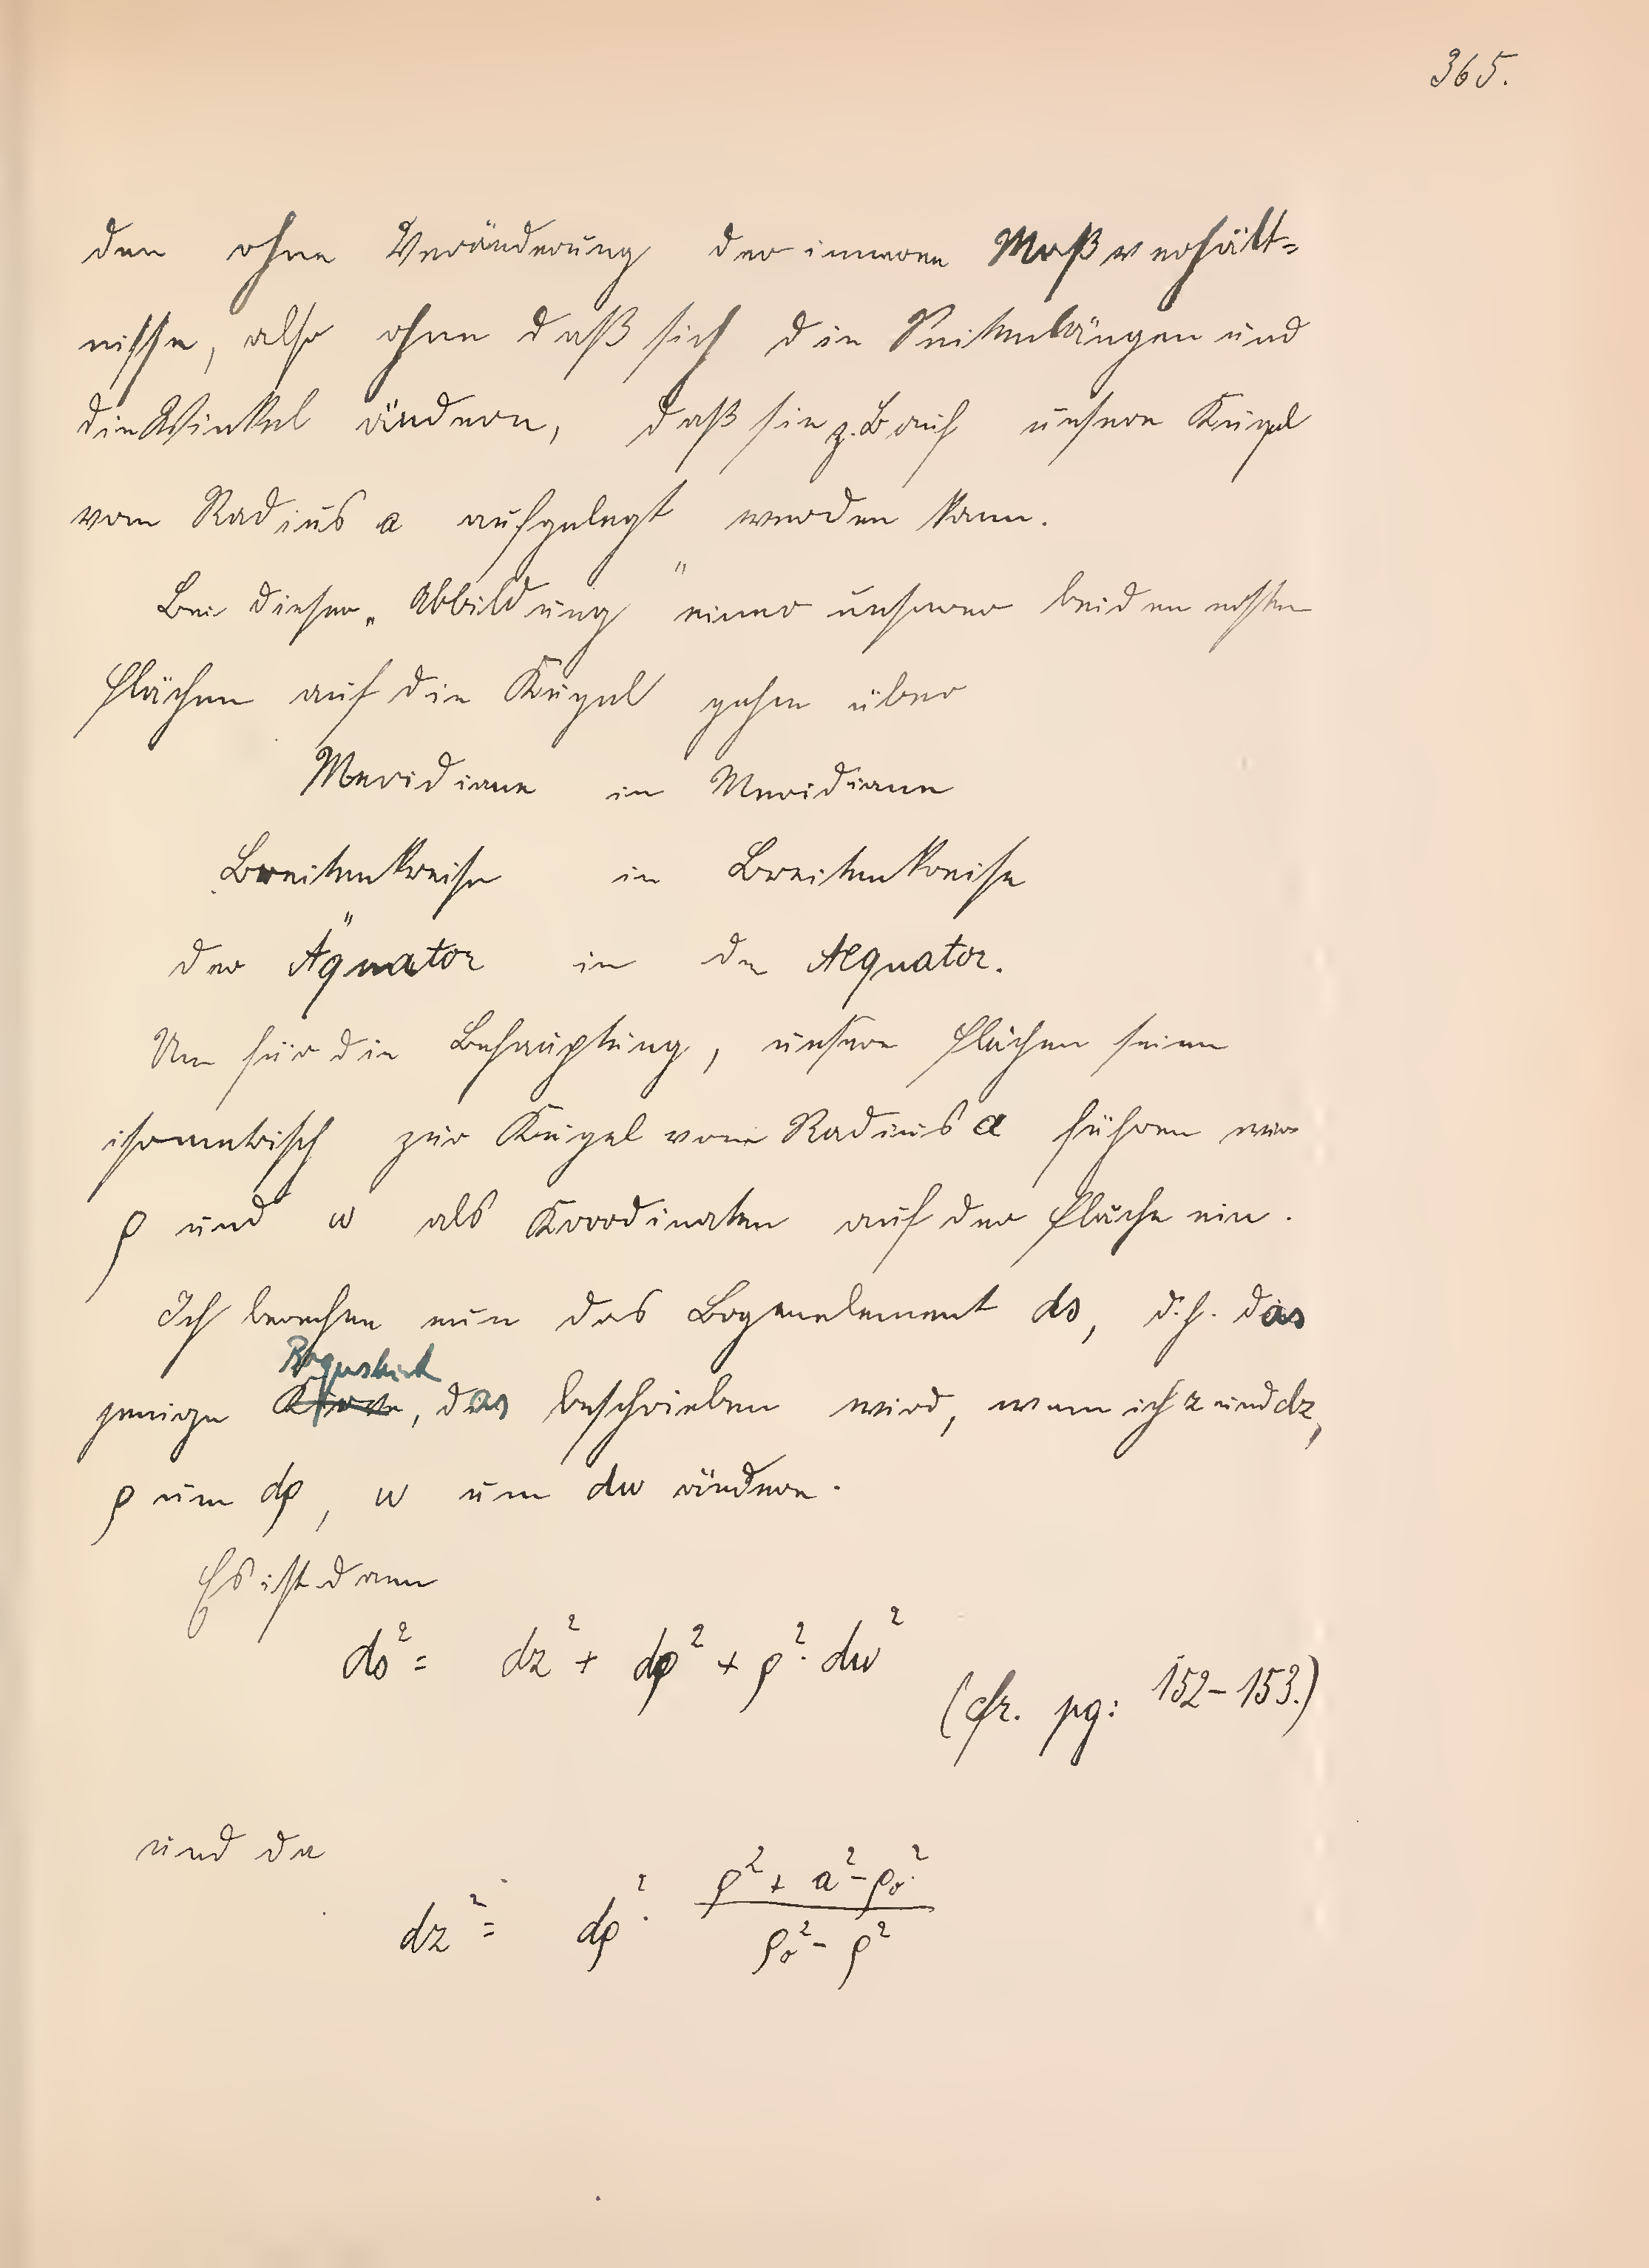 365.
den ohne Veränderung der inneren Maßverhält=
nisse, also ohne daß sich die Seitenlängen und
die Winkel ändern, daß sie z.B auf unsere Kugel
vom Radius a aufgelegt werden kann.
Bei dieser „Abbildung" einer unserer beiden ersten
Flächen auf die Kugel gehen über
Meridiane in Meridiane
Breitenkreise in Breitenkreise
der Äquator in den Aequator.
Um für die Behauptung, unsere Flächen seien
isometrisch zur Kugel vom Radius a führen wir
ρ und w als Koordinaten auf der Fläche ein.
Ich berechne nun das Bogenelement ds, d.h. das
Bogenstück
jenige Kurve, das beschrieben wird, wenn ich z und dz,
ρ um dρ, w um dw ändere.
Es ist dann
ds² = dz² + dρ² + ρ². dw²
(cfr. pg: 152-153.)
und da
dz² = dρ². (ρ² + a² - ρ₀²) / (ρ₀² - ρ²)